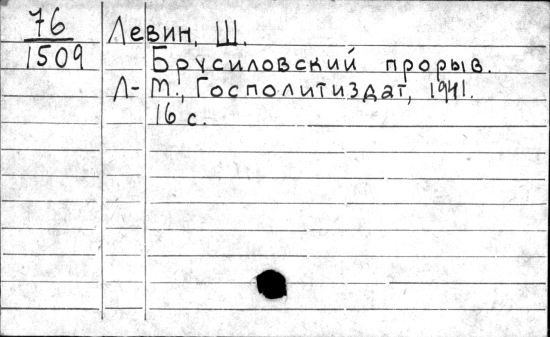 76
1509
Левин, Ш.
Брусиловский прорыв.
Л-М., Госполитиздат, 1941.
16 с.